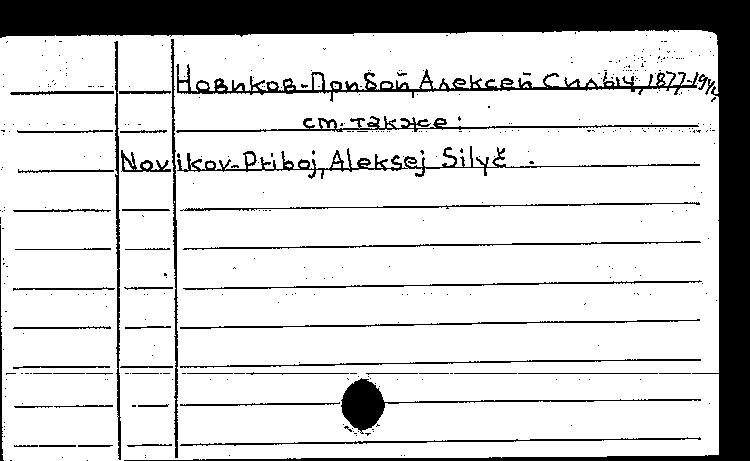 Новиков-Прибой, Алексей Силыч, 1877-1944.
см. также:
Novikov-Priboj, Aleksej Silyč.